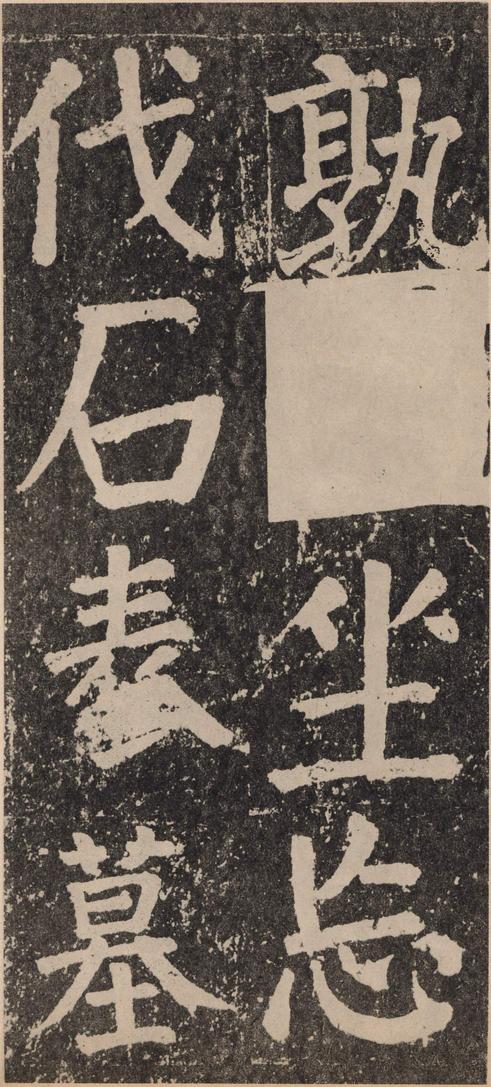 孰坐忘
伐石表墓